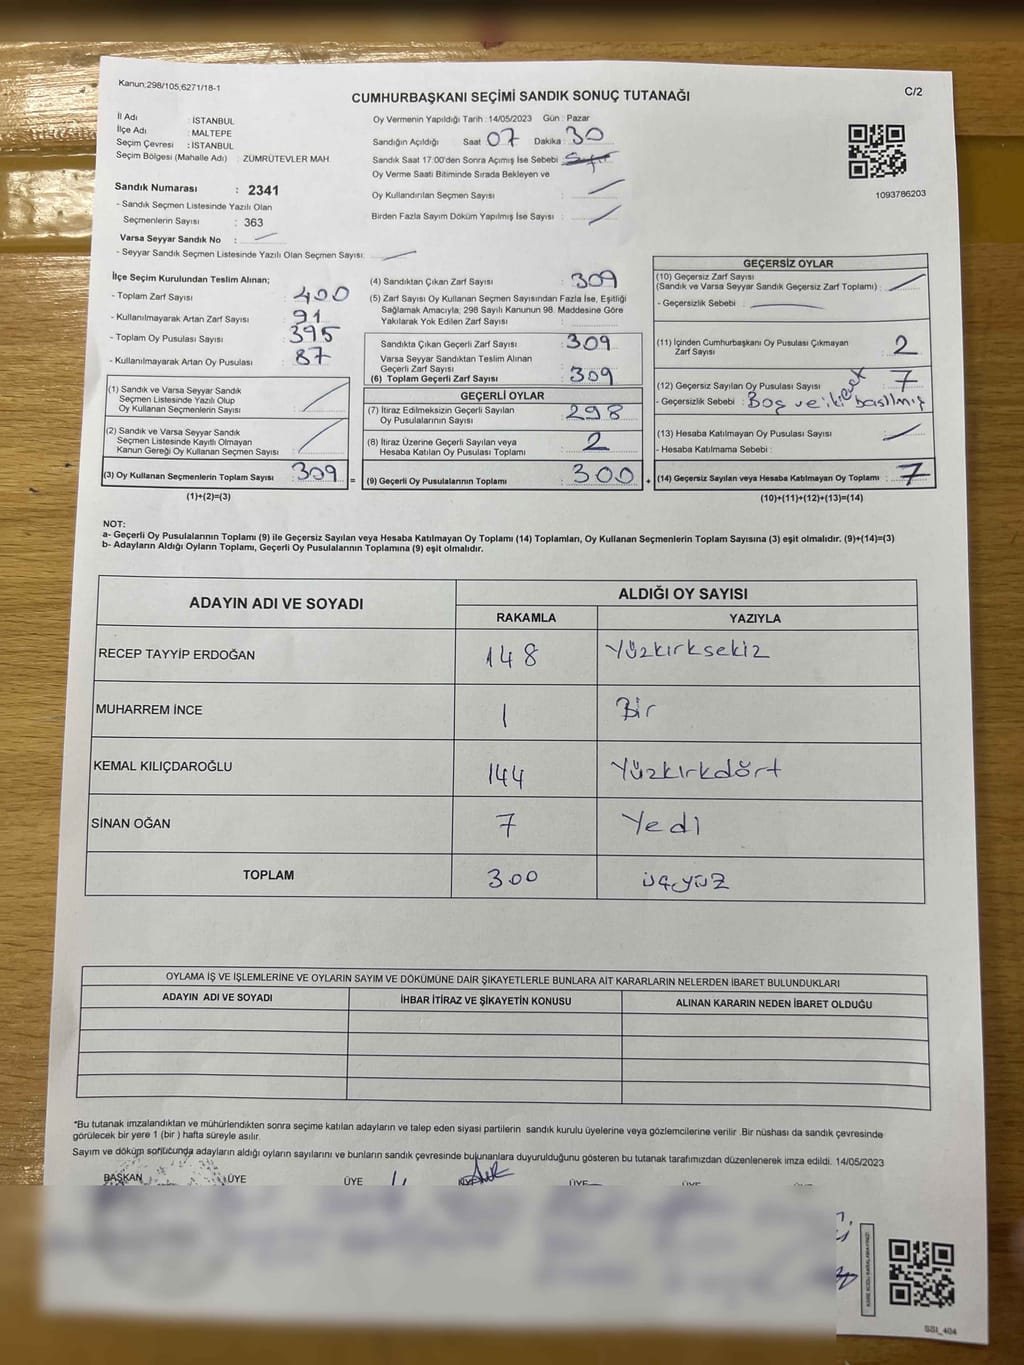 Kanun;298/105,6271/18-1
CUMHURBAŞKANI SEÇİMİ SANDIK SONUÇ TUTANAĞI
C/2
İl Adı : İSTANBUL
İlçe Adı : MALTEPE
Seçim Çevresi : İSTANBUL
Seçim Bölgesi (Mahalle Adı) : ZÜMRÜTEVLER MAH.
Oy Vermenin Yapıldığı Tarih : 14/05/2023 Gün : Pazar
Sandığın Açıldığı Saat 07 Dakika : 30
Sandık Saat 17:00'den Sonra Açımış İse Sebebi
Oy Verme Saati Bitiminde Sırada Bekleyen ve
Oy Kullandırılan Seçmen Sayısı :
Birden Fazla Sayım Döküm Yapılmış İse Sayısı :
1093786203
Sandık Numarası : 2341
- Sandık Seçmen Listesinde Yazılı Olan
Seçmenlerin Sayısı : 363
Varsa Seyyar Sandık No :
- Seyyar Sandık Seçmen Listesinde Yazılı Olan Seçmen Sayısı:
İlçe Seçim Kurulundan Teslim Alınan;
- Toplam Zarf Sayısı : 400
- Kullanılmayarak Artan Zarf Sayısı : 91
- Toplam Oy Pusulası Sayısı : 395
- Kullanılmayarak Artan Oy Pusulası : 87
(1) Sandık ve Varsa Seyyar Sandık
Seçmen Listesinde Yazılı Olup
Oy Kullanan Seçmenlerin Sayısı :
(2) Sandık ve Varsa Seyyar Sandık
Seçmen Listesinde Kayıtlı Olmayan
Kanun Gereği Oy Kullanan Seçmen Sayısı :
(3) Oy Kullanan Seçmenlerin Toplam Sayısı : 309 =
(1)+(2)=(3)
(4) Sandıktan Çıkan Zarf Sayısı : 309
(5) Zarf Sayısı Oy Kullanan Seçmen Sayısından Fazla İse, Eşitliği
Sağlamak Amacıyla, 298 Sayılı Kanunun 98. Maddesine Göre
Yakılarak Yok Edilen Zarf Sayısı :
Sandıkta Çıkan Geçerli Zarf Sayısı : 309
Varsa Seyyar Sandıktan Teslim Alınan
Geçerli Zarf Sayısı :
(6) Toplam Geçerli Zarf Sayısı : 309
GEÇERLİ OYLAR
(7) İtiraz Edilmeksizin Geçerli Sayılan
Oy Pusulalarının Sayısı : 298
(8) İtiraz Üzerine Geçerli Sayılan veya
Hesaba Katılan Oy Pusulası Toplamı : 2
(9) Geçerli Oy Pusulalarının Toplamı : 300 +
GEÇERSİZ OYLAR
(10) Geçersiz Zarf Sayısı
(Sandık ve Varsa Seyyar Sandık Geçersiz Zarf Toplamı) :
- Geçersizlik Sebebi :
(11) İçinden Cumhurbaşkanı Oy Pusulası Çıkmayan
Zarf Sayısı : 2
(12) Geçersiz Sayılan Oy Pusulası Sayısı : 7
- Geçersizlik Sebebi : Boş ve iki evet basılmış
(13) Hesaba Katılmayan Oy Pusulası Sayısı :
- Hesaba Katılmama Sebebi :
(14) Geçersiz Sayılan veya Hesaba Katılmayan Oy Toplamı : 7
(10)+(11)+(12)+(13)=(14)
NOT:
a- Geçerli Oy Pusulalarının Toplamı (9) ile Geçersiz Sayılan veya Hesaba Katılmayan Oy Toplamı (14) Toplamları, Oy Kullanan Seçmenlerin Toplam Sayısına (3) eşit olmalıdır. (9)+(14)=(3)
b- Adayların Aldığı Oyların Toplamı, Geçerli Oy Pusulalarının Toplamına (9) eşit olmalıdır.
ADAYIN ADI VE SOYADI ALDIĞI OY SAYISI
RAKAMLA YAZIYLA
RECEP TAYYİP ERDOĞAN 148 Yüzkırksekiz
MUHARREM İNCE 1 Bir
KEMAL KILIÇDAROĞLU 144 Yüzkırkdört
SİNAN OĞAN 7 Yedi
TOPLAM 300 üçyüz
OYLAMA İŞ VE İŞLEMLERİNE VE OYLARIN SAYIM VE DÖKÜMÜNE DAİR ŞİKAYETLERLE BUNLARA AİT KARARLARIN NELERDEN İBARET BULUNDUKLARI
ADAYIN ADI VE SOYADI İHBAR İTİRAZ VE ŞİKAYETİN KONUSU ALINAN KARARIN NEDEN İBARET OLDUĞU
*Bu tutanak imzalandıktan ve mühürlendikten sonra seçime katılan adayların ve talep eden siyasi partilerin sandık kurulu üyelerine veya gözlemcilerine verilir .Bir nüshası da sandık çevresinde
görülecek bir yere 1 (bir ) hafta süreyle asılır.
Sayım ve döküm sonucunda adayların aldığı oyların sayılarını ve bunların sandık çevresinde bulunanlara duyurulduğunu gösteren bu tutanak tarafımızdan düzenlenerek imza edildi. 14/05/2023
BAŞKAN ÜYE ÜYE ÜYE
SSI_404